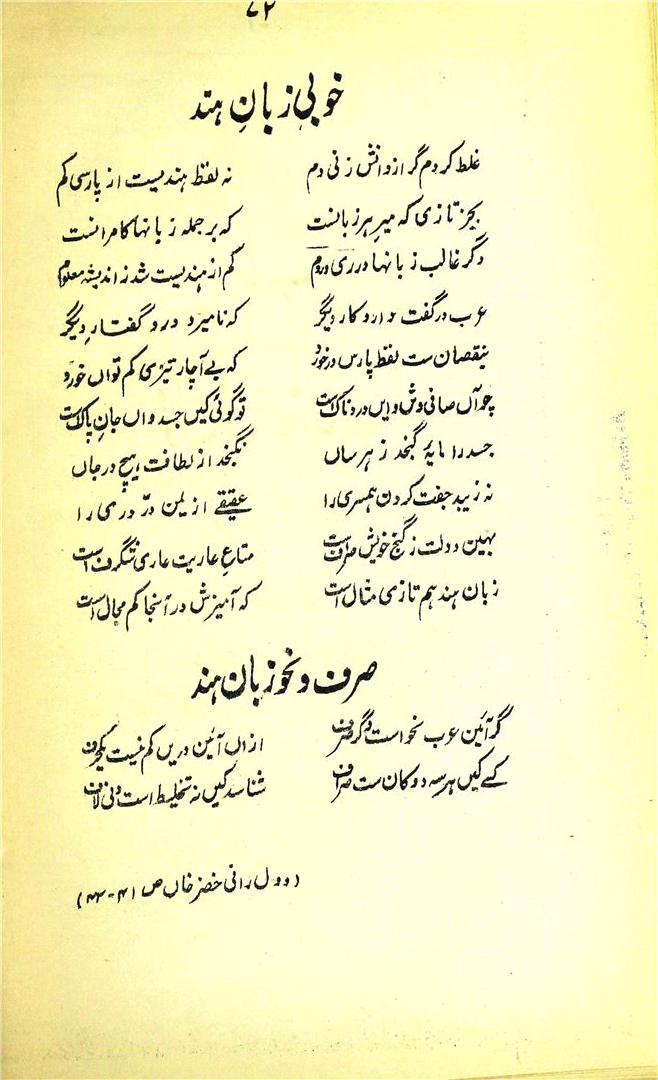 ۷۲
خوبیِ زبانِ ہند
غلط کردم گر از دانش زنی دم نہ لفظ ہندیست از پارسی کم
بجز تازی کہ میرِ ہر زبانست کہ بر جملہ زبانہا کامرانست
دگر غالب زبانہا در ری و روم کم از ہندیست شد ز اندیشہ معلوم
عرب در گفت دارد کار دیگر کہ نامیزد درو گفتارِ دیگر
بنقصان ست لفظ پارس در خورد کہ بے آچار تیزی کم تواں خورد
چو آں صافی وش و ایں دردناکست تو گوئی کیں جسد واں جانِ پاکست
جسد را مایۂ گنجد ز ہر ساں نگنجد از لطافت ہیچ در جاں
نہ زیبد جفت کردن ہمسری را عقیقے از یمن درّ دری را
بہین دولت ز گنج خویش صرف است متاعِ عاریت عاری شگرف است
زبان ہند ہم تازی مثال است کہ آمیزش در آنجا کم مجال است
صرف و نحو زبان ہند
گر آئین عرب نحو است و گر صرف ازاں آئین دریں کم نیست یکحرف
کسے کیں ہر سہ دوکان ست صراف شناسد کیں نہ تخلیط است و نی لاف
(دول رانی خضر خاں ص ۴۱-۴۲)